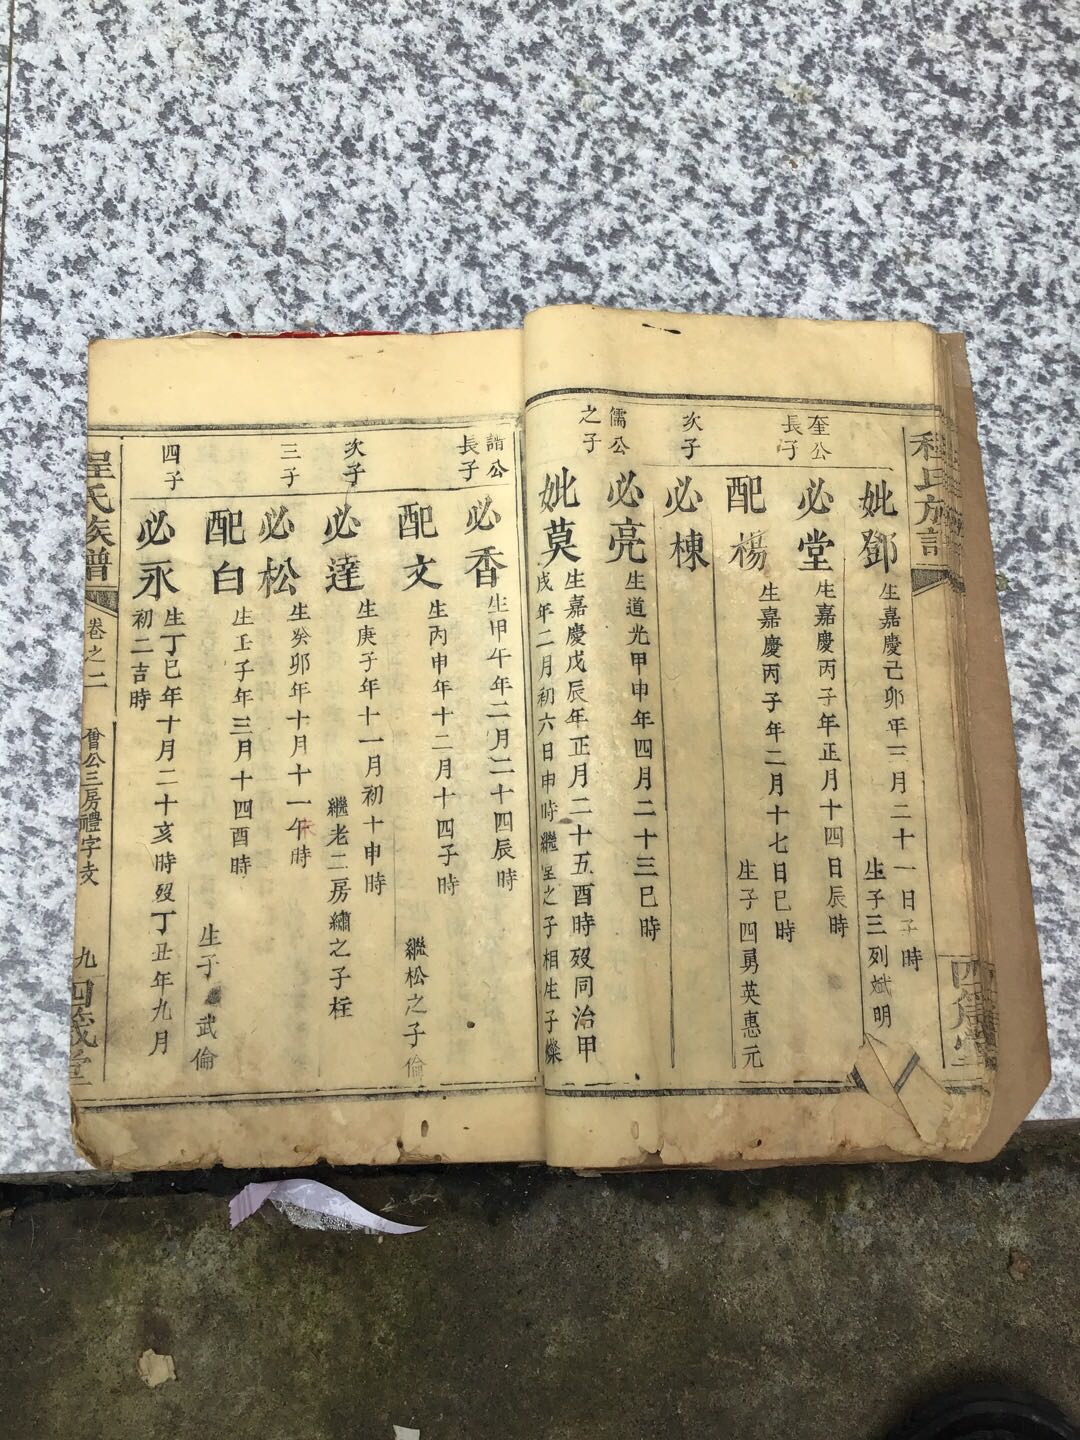 程氏族譜
四箴堂
妣鄧
生嘉慶己卯年三月二十一日子時
生子三列斌明
奎公長子
必堂
生嘉慶丙子年正月十四日辰時
配楊
生嘉慶丙子年二月十七日巳時
生子四勇英惠元
次子
必棟
儒公之子
必亮
生道光甲申年四月二十三巳時
妣莫
生嘉慶戊辰年正月二十五酉時歿同治甲
戌年二月初六日申時繼堂之子相生子燦
公長子
必香
生甲午年二月二十四辰時
配文
生丙申年十二月十四子時
繼松之子倫
次子
必達
生庚子年十一月初十申時
繼老二房繡之子柱
三子
必松
生癸卯年十月十一午時
配白
生壬子年三月十四酉時
生子武倫
四子
必永
生丁巳年十月二十亥時歿丁丑年九月
初二吉時
程氏族譜
卷之二
僧公三房禮字支
九
四箴堂